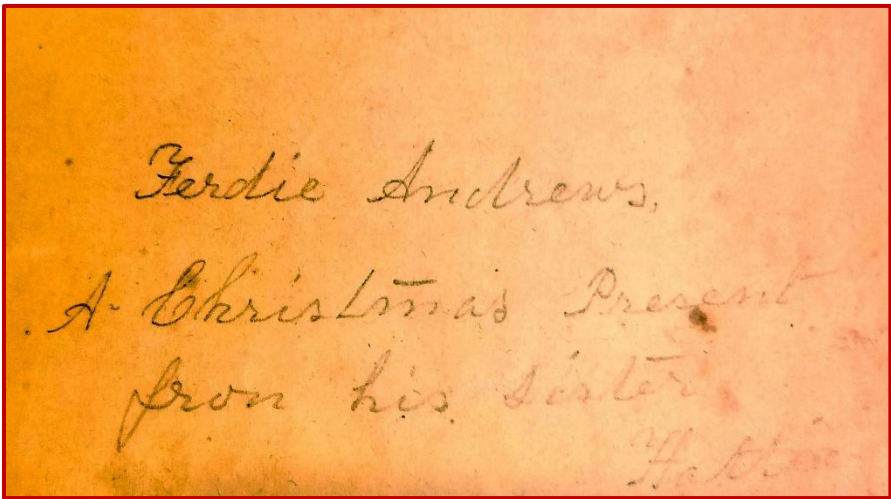 Ferdie Andrews.
A Christmas Present
from his sister
Hattie